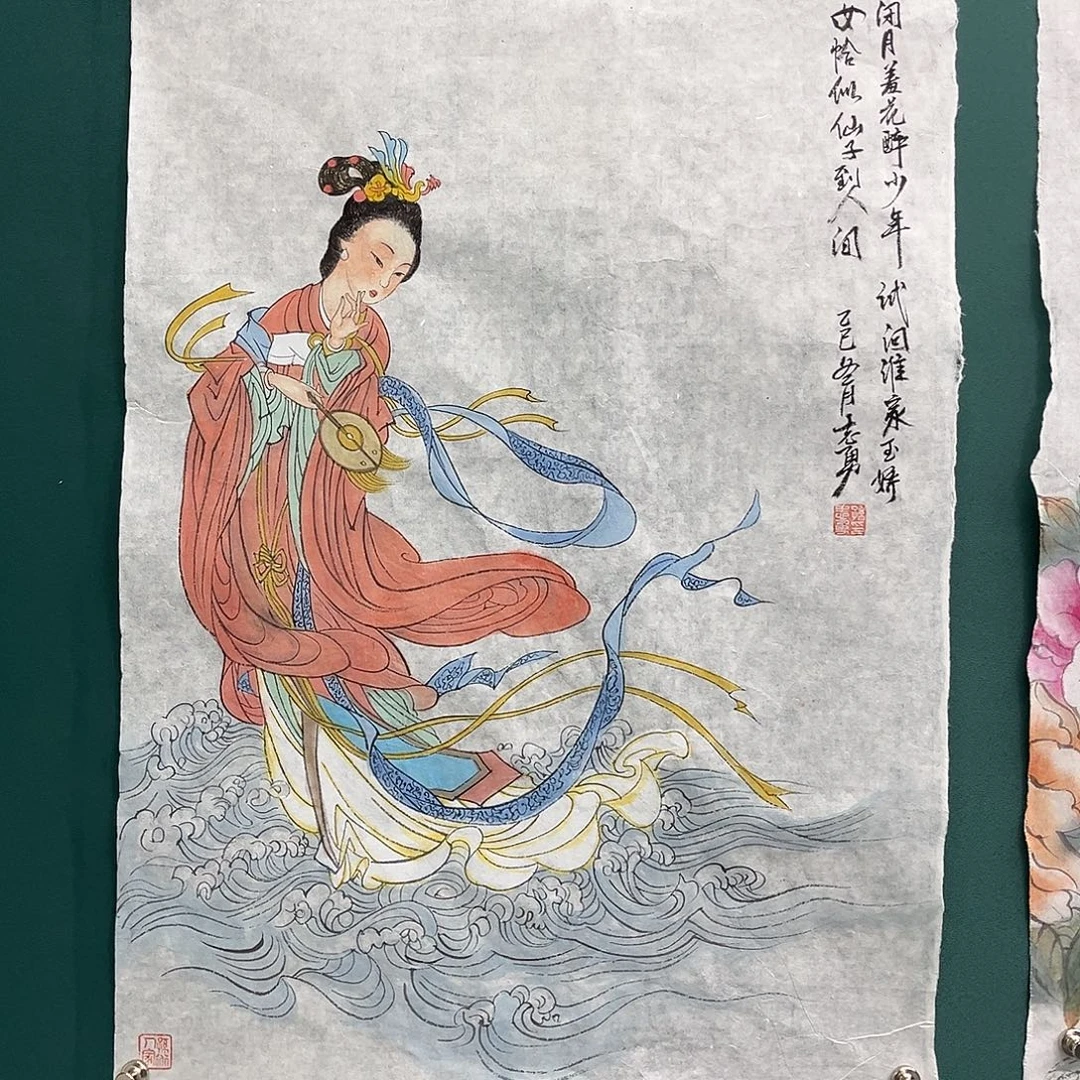 闭月羞花醉少年 试问谁家玉娇
女恰似仙子到人间
乙巳冬月志勇